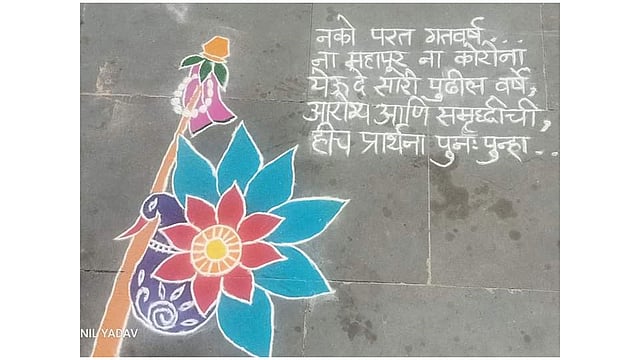 नको परत गतवर्ष...
ना महापूर ना कोरोना
येऊ दे सारी पुढील वर्षे,
आरोग्य आणि समृध्दीची,
हीच प्रार्थना पुनः पुन्हा..
NIL YADAV